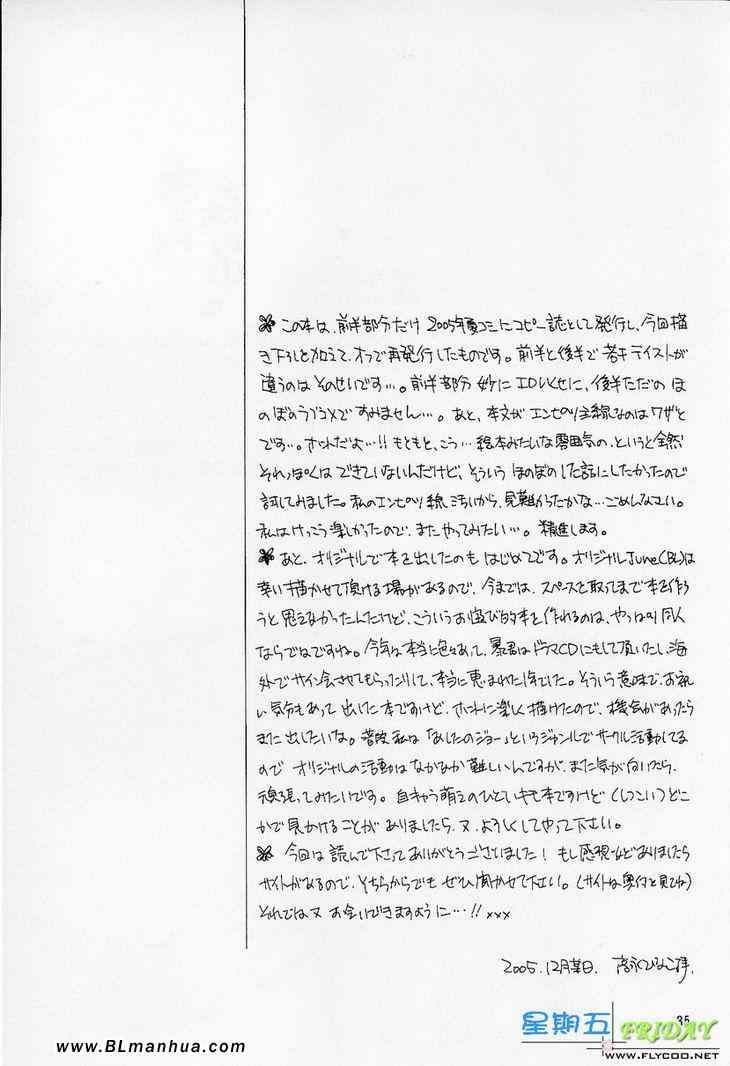 この本は、前半部分だけ2005年夏コミにコピー誌として発行し、今回描
き下ろしを加えて、オフで再発行したものです。前半と後半で若干テイストが
違うのはそのせいです…。前半部分 妙にエロいくせに、後半ただの ほ
のぼのラブコメですみません…。あと、本文がエンピツ主線なのはワザと
です…。さいたよ…!! もともと、こう…絵本みたいな雰囲気の、というと全然
それっぽくはできていないんだけど、そういう ほのぼのした話にしたかったので
試してみました。私のエンピツ線 汚いから、見難かったかな…ごめんなさい。
私はけっこう楽しかったので、またやってみたい…。精進します。
あと、オリジナルで本を出したのも はじめてです。オリジナルJune(BL)は
幸い描かせて頂ける場があるので、今までは、スペースを取ってまで本を作ろ
うと思えなかったんだけど、こういうお遊び的本を作れるのは、やっぱり同人
ならではですね。今年は本当に色々あって、暴君はドラマCDにもして頂いたし、海
外でサイン会させてもらったりして、本当に恵まれた1年でした。そういう意味で、お祝
い気分もあって出した本ですけど、さいわに楽しく描けたので、機会があったら
また出したいな。普段私は「あしたのジョー」というジャンルでサークル活動してる
ので オリジナルの活動はなかなか難しいんですが、また気が向いたら、
頑張ってみたいです。自キャラ萌えのひどいキモ本ですけど(しつこい)どこ
かで見かけることがありましたら、又、よろしくしてやって下さい。
今回は読んで下さってありがとうございました! もし感想などありましたら
サイトがあるので、そちらからでも ぜひ聞かせて下さい。(サイトは奥付を見てね)
それでは又 お会いできますように…!! xxx
2005.12月某日. 高永ひなこ拝.
35
星期五 FRIDAY
www.BLmanhua.com
WWW.FLYCOO.NET